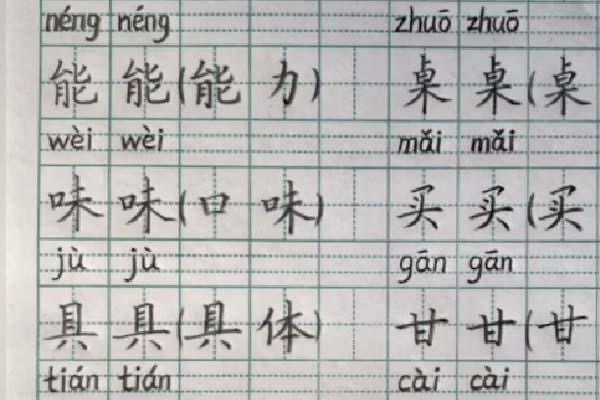 néng néng zhuō zhuō
能 能(能 力) 桌 桌(桌
wèi wèi mǎi mǎi
味 味(口 味) 买 买(买
jù jù gān gān
具 具(具 体) 甘 甘(甘
tián tián cài cài